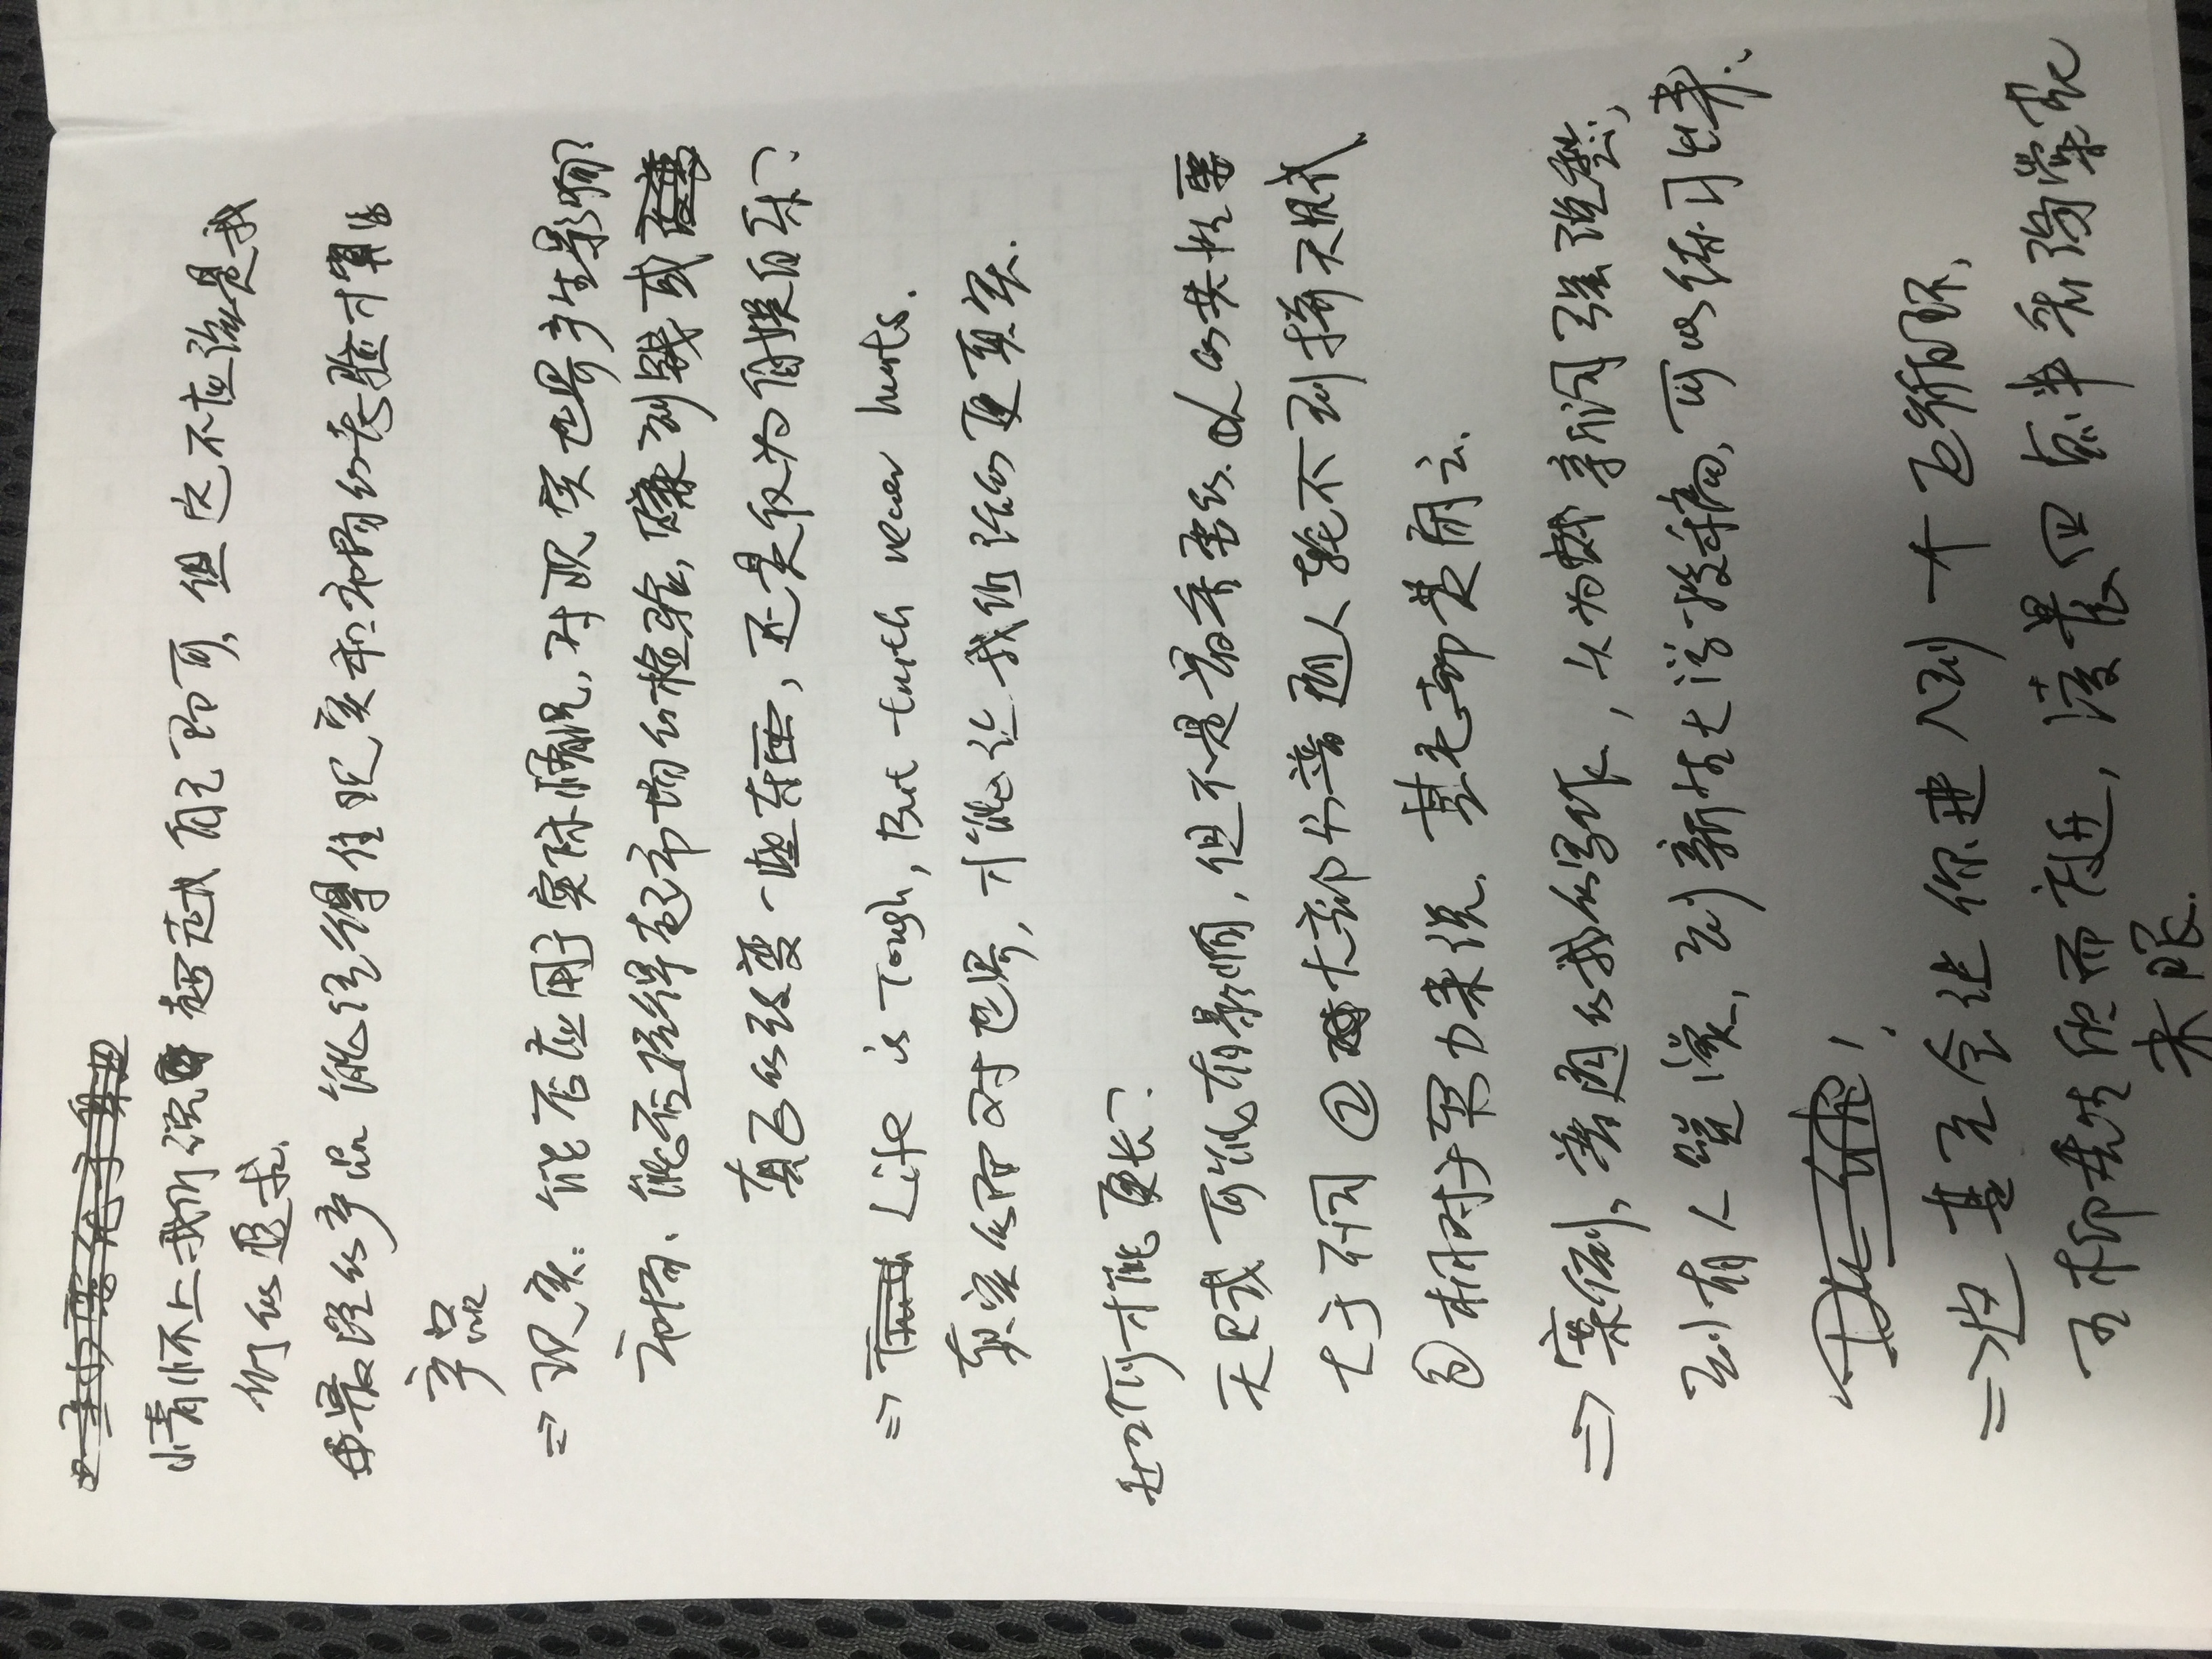 情怀上我们说超越自己即可，但这不应该是我
们的追求.
最终的产品能经得住现实和市场的考验才算是
产品
⇒ 现实：能否应用于实际情况，对现实世界产生影响?
市场、能否经得起市场的检验，赚到钱或
真正的改变一些东西，还是仅为自娱自乐?
⇒ Life is Tough, But truth never hurts.
真实的面对世界，才能让我们活的更真实.
如何才能更长?
天赋可能有影响，但不是最重要的. 人的共性要
大于不同 ② 大部分普通人轮不到拼天赋
③ 相对于努力来说. 其它都是浮云.
⇒ 案例、普通的我的写作，从为新词强说愁，
到有人赞赏，到新生大学投稿，可以练习出来、
⇒ 这甚至会让你进入到一个正循环，
五柳先生欣而忘食，凌晨四点半看海棠花
未眠.